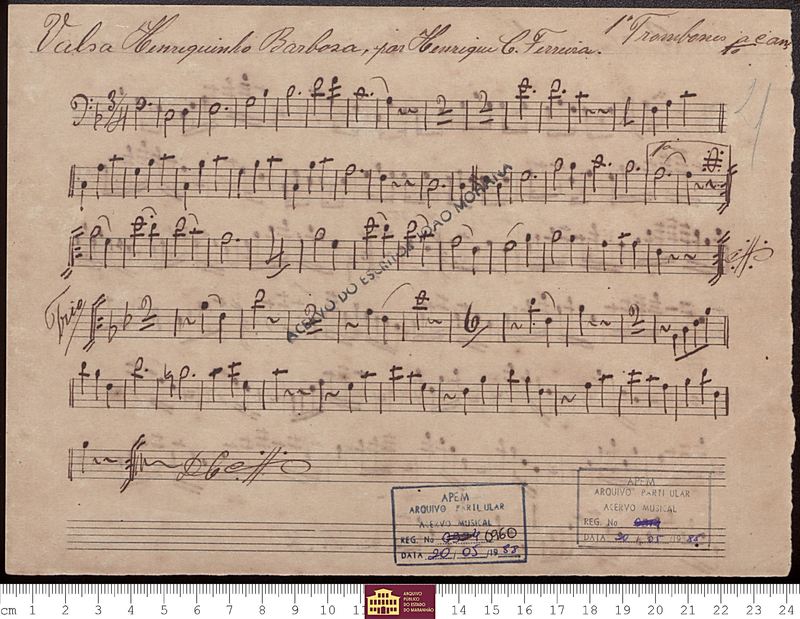 Valsa Henriquinho Barbosa, por Henrique C. Ferreira. 1º Trombones
3/4
2 2
ACERVO DO ESCRITOR JOÃO MOHANA
1ª
4
Trio 2 2 6 2
D C
APEM
ARQUIVO PARTICULAR
ACERVO MUSICAL
REG. No 0960
DATA 20 / 05 /19 88
APEM
ARQUIVO PARTICULAR
ACERVO MUSICAL
REG. No
DATA 20 / 05 /19 88
cm 1 2 3 4 5 6 7 8 9 10 11 14 15 16 17 18 19 20 21 22 23 24
ARQUIVO
PÚBLICO
DO ESTADO
DO MARANHÃO